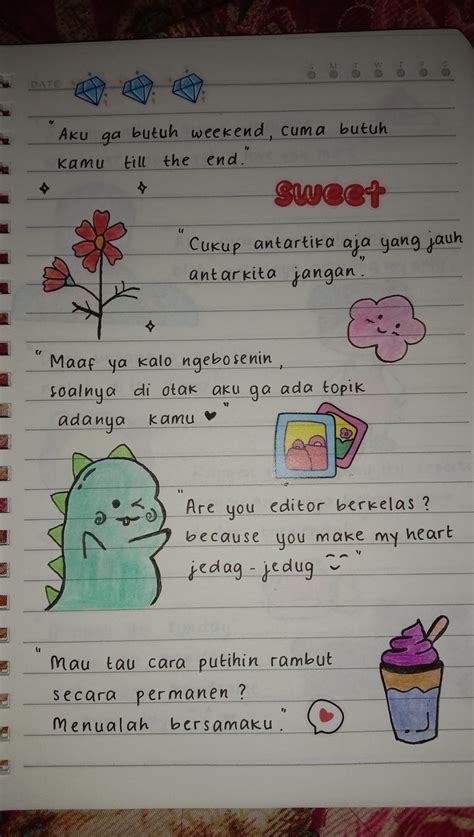 DATE
S M T W T F S
"Aku ga butuh weekend, cuma butuh
kamu till the end."
sweet
"Cukup antartika aja yang jauh
antarkita jangan."
"Maaf ya kalo ngebosenin,
soalnya di otak aku ga ada topik
adanya kamu ♥"
"Are you editor berkelas?
because you make my heart
jedag-jedug"
"Mau tau cara putihin rambut
secara permanen?
Menualah bersamaku."